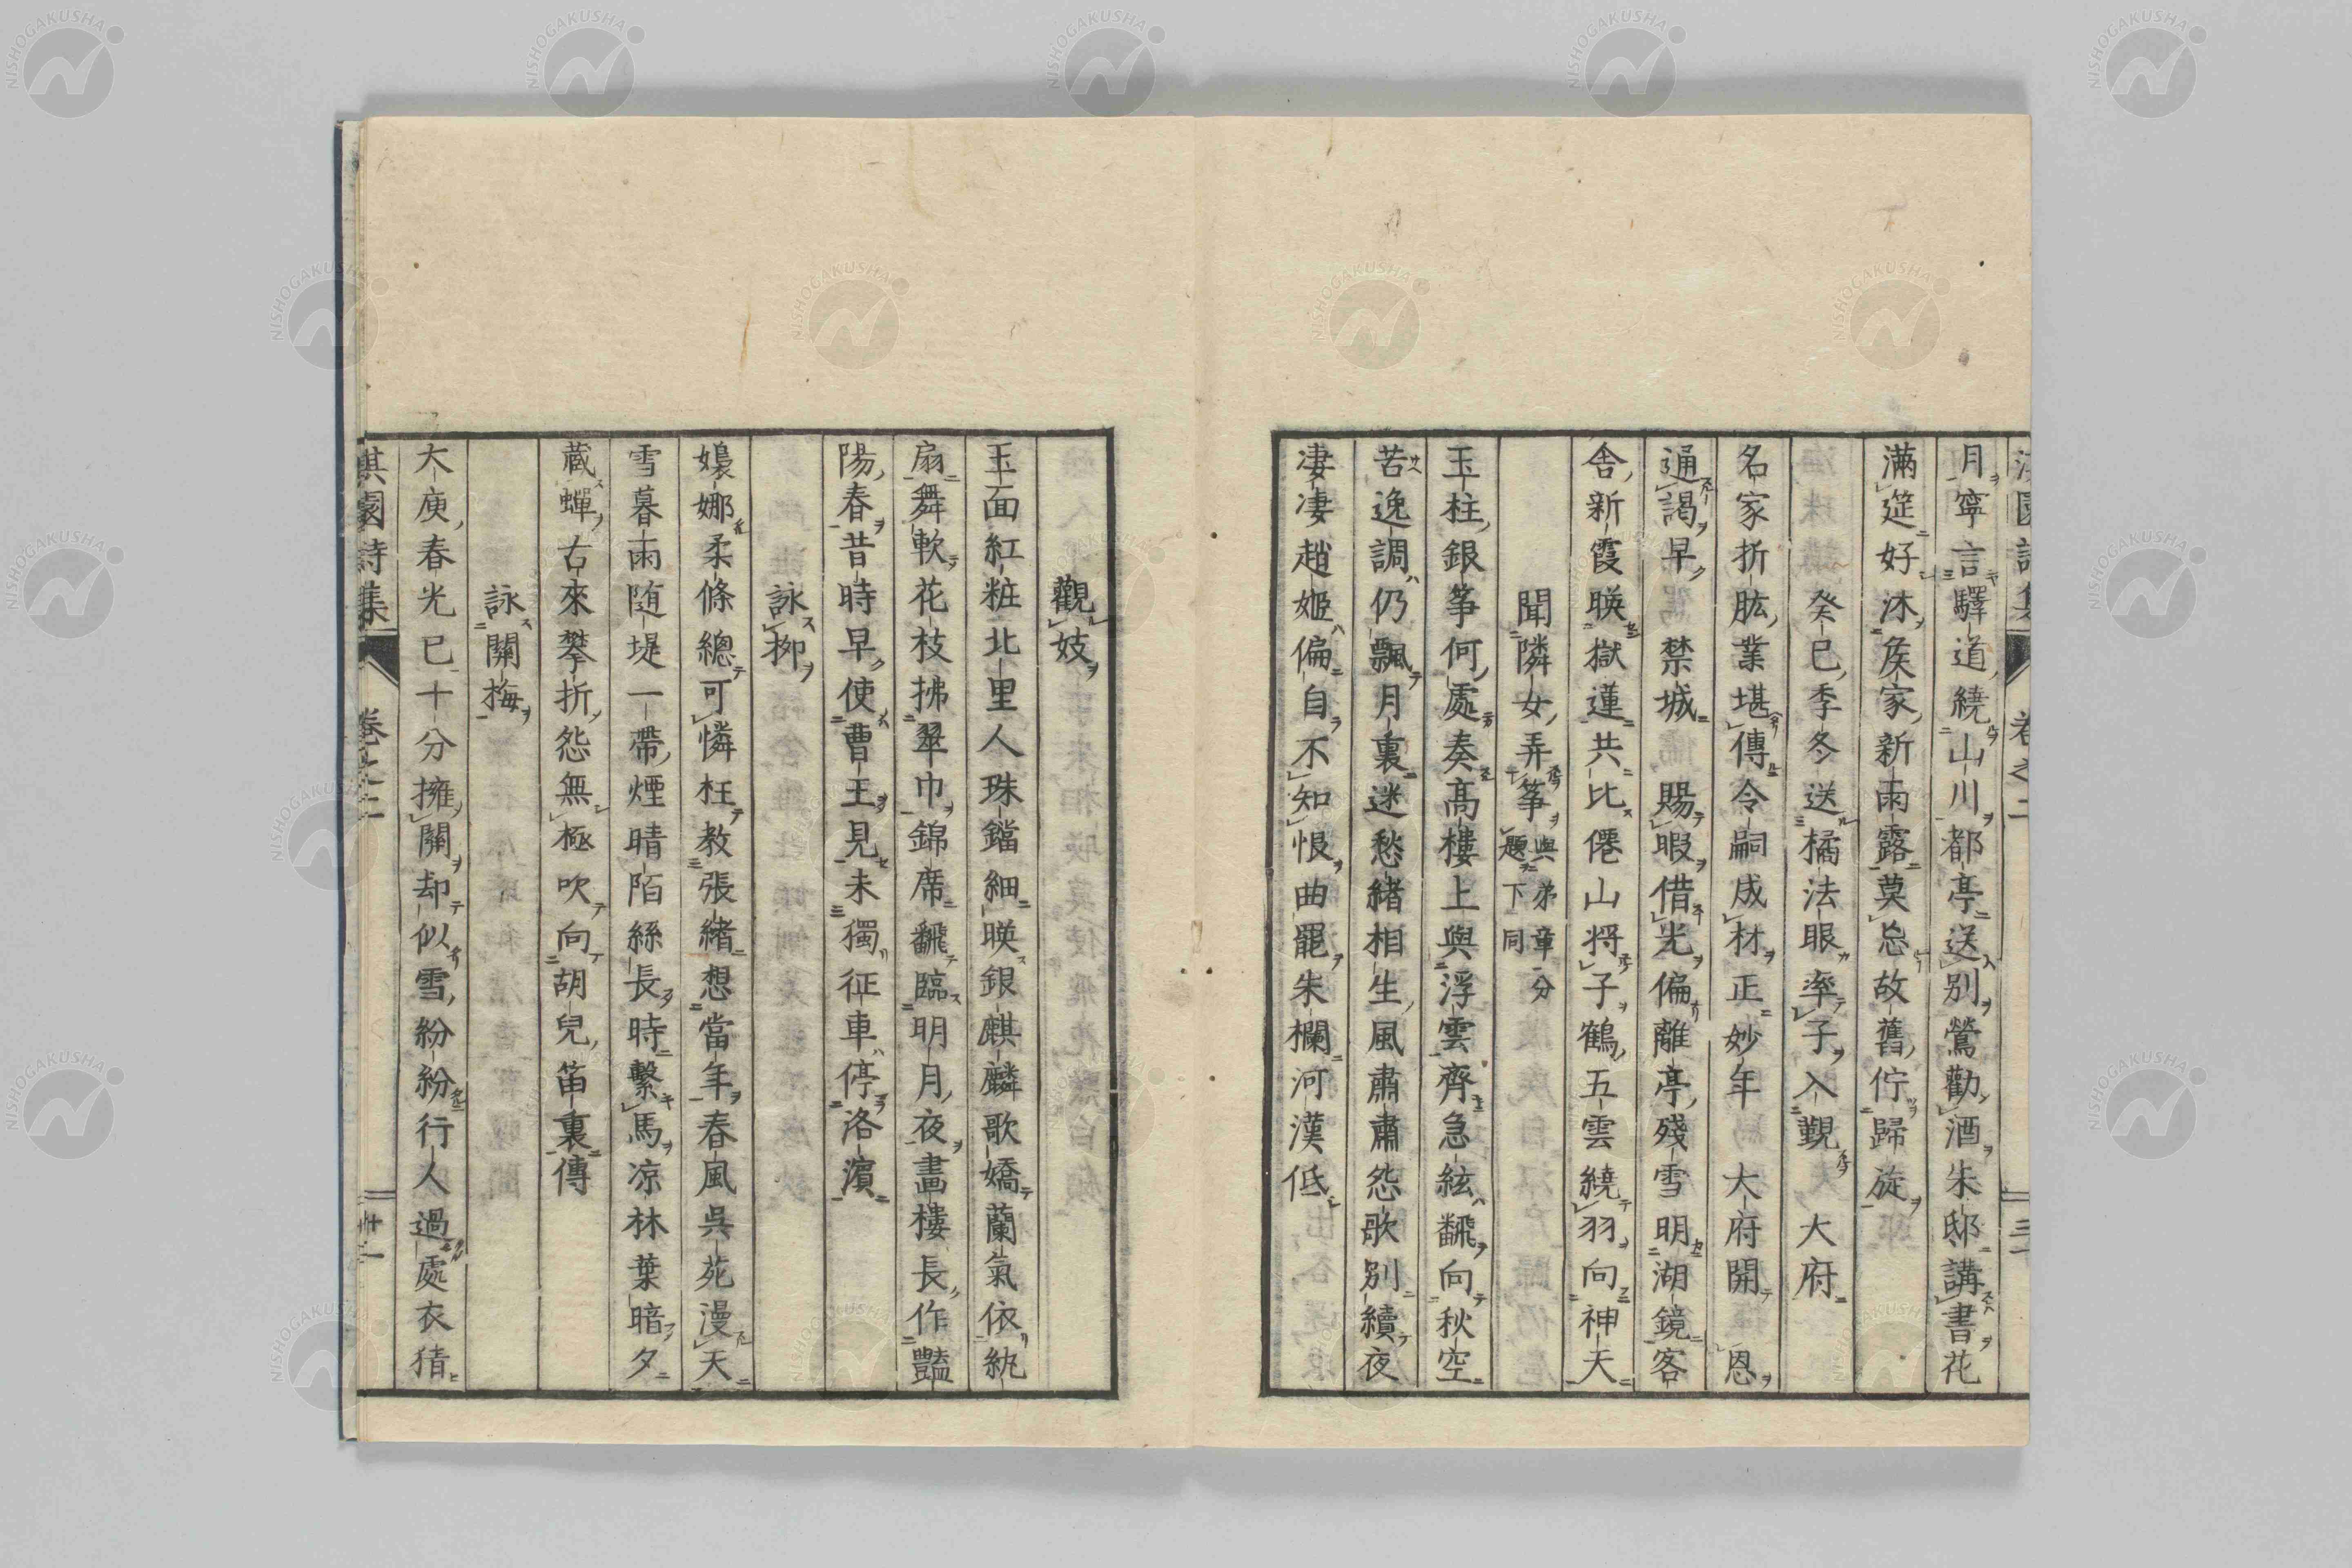 月寧言驛道繞山川都亭送別鶯勸酒朱邸講書花
滿筵好沐矦家新雨露莫忘故舊佇歸旋
癸巳季冬送橘法眼率子入覲 大府
名家折肱業堪傳令嗣成材正妙年 大府開 恩
通謁早 禁城 賜暇借光偏離亭殘雪明湖鏡客
舍新霞暎嶽蓮共比僊山將子鶴五雲繞羽向神天
聞隣女弄筝與弟章分題下同
玉柱銀筝何處奏高樓上與浮雲齊急絃飜向秋空
苦逸調仍飄月裏迷愁緒相生風肅肅怨歌別續夜
凄凄趙姬偏自不知恨曲罷朱欄河漢低
觀妓
玉面紅粧北里人珠鐺細暎銀麒麟歌嬌蘭氣依紈
扇舞軟花枝拂翠巾錦席飜臨明月夜畫樓長作豔
陽春昔時早使曹王見未獨征車停洛濵
詠柳
嬝娜柔條總可憐枉教張緒想當年春風吳苑漫天
雪暮雨随堤一帶煙晴陌絲長時繫馬凉林葉暗夕
蔵蟬古來攀折怨無極吹向胡兒笛裏傳
詠關梅
大庾春光已十分擁關却似雪紛紛行人過處衣猜
淇園詩集 卷之二
NISHOGAKUSHA